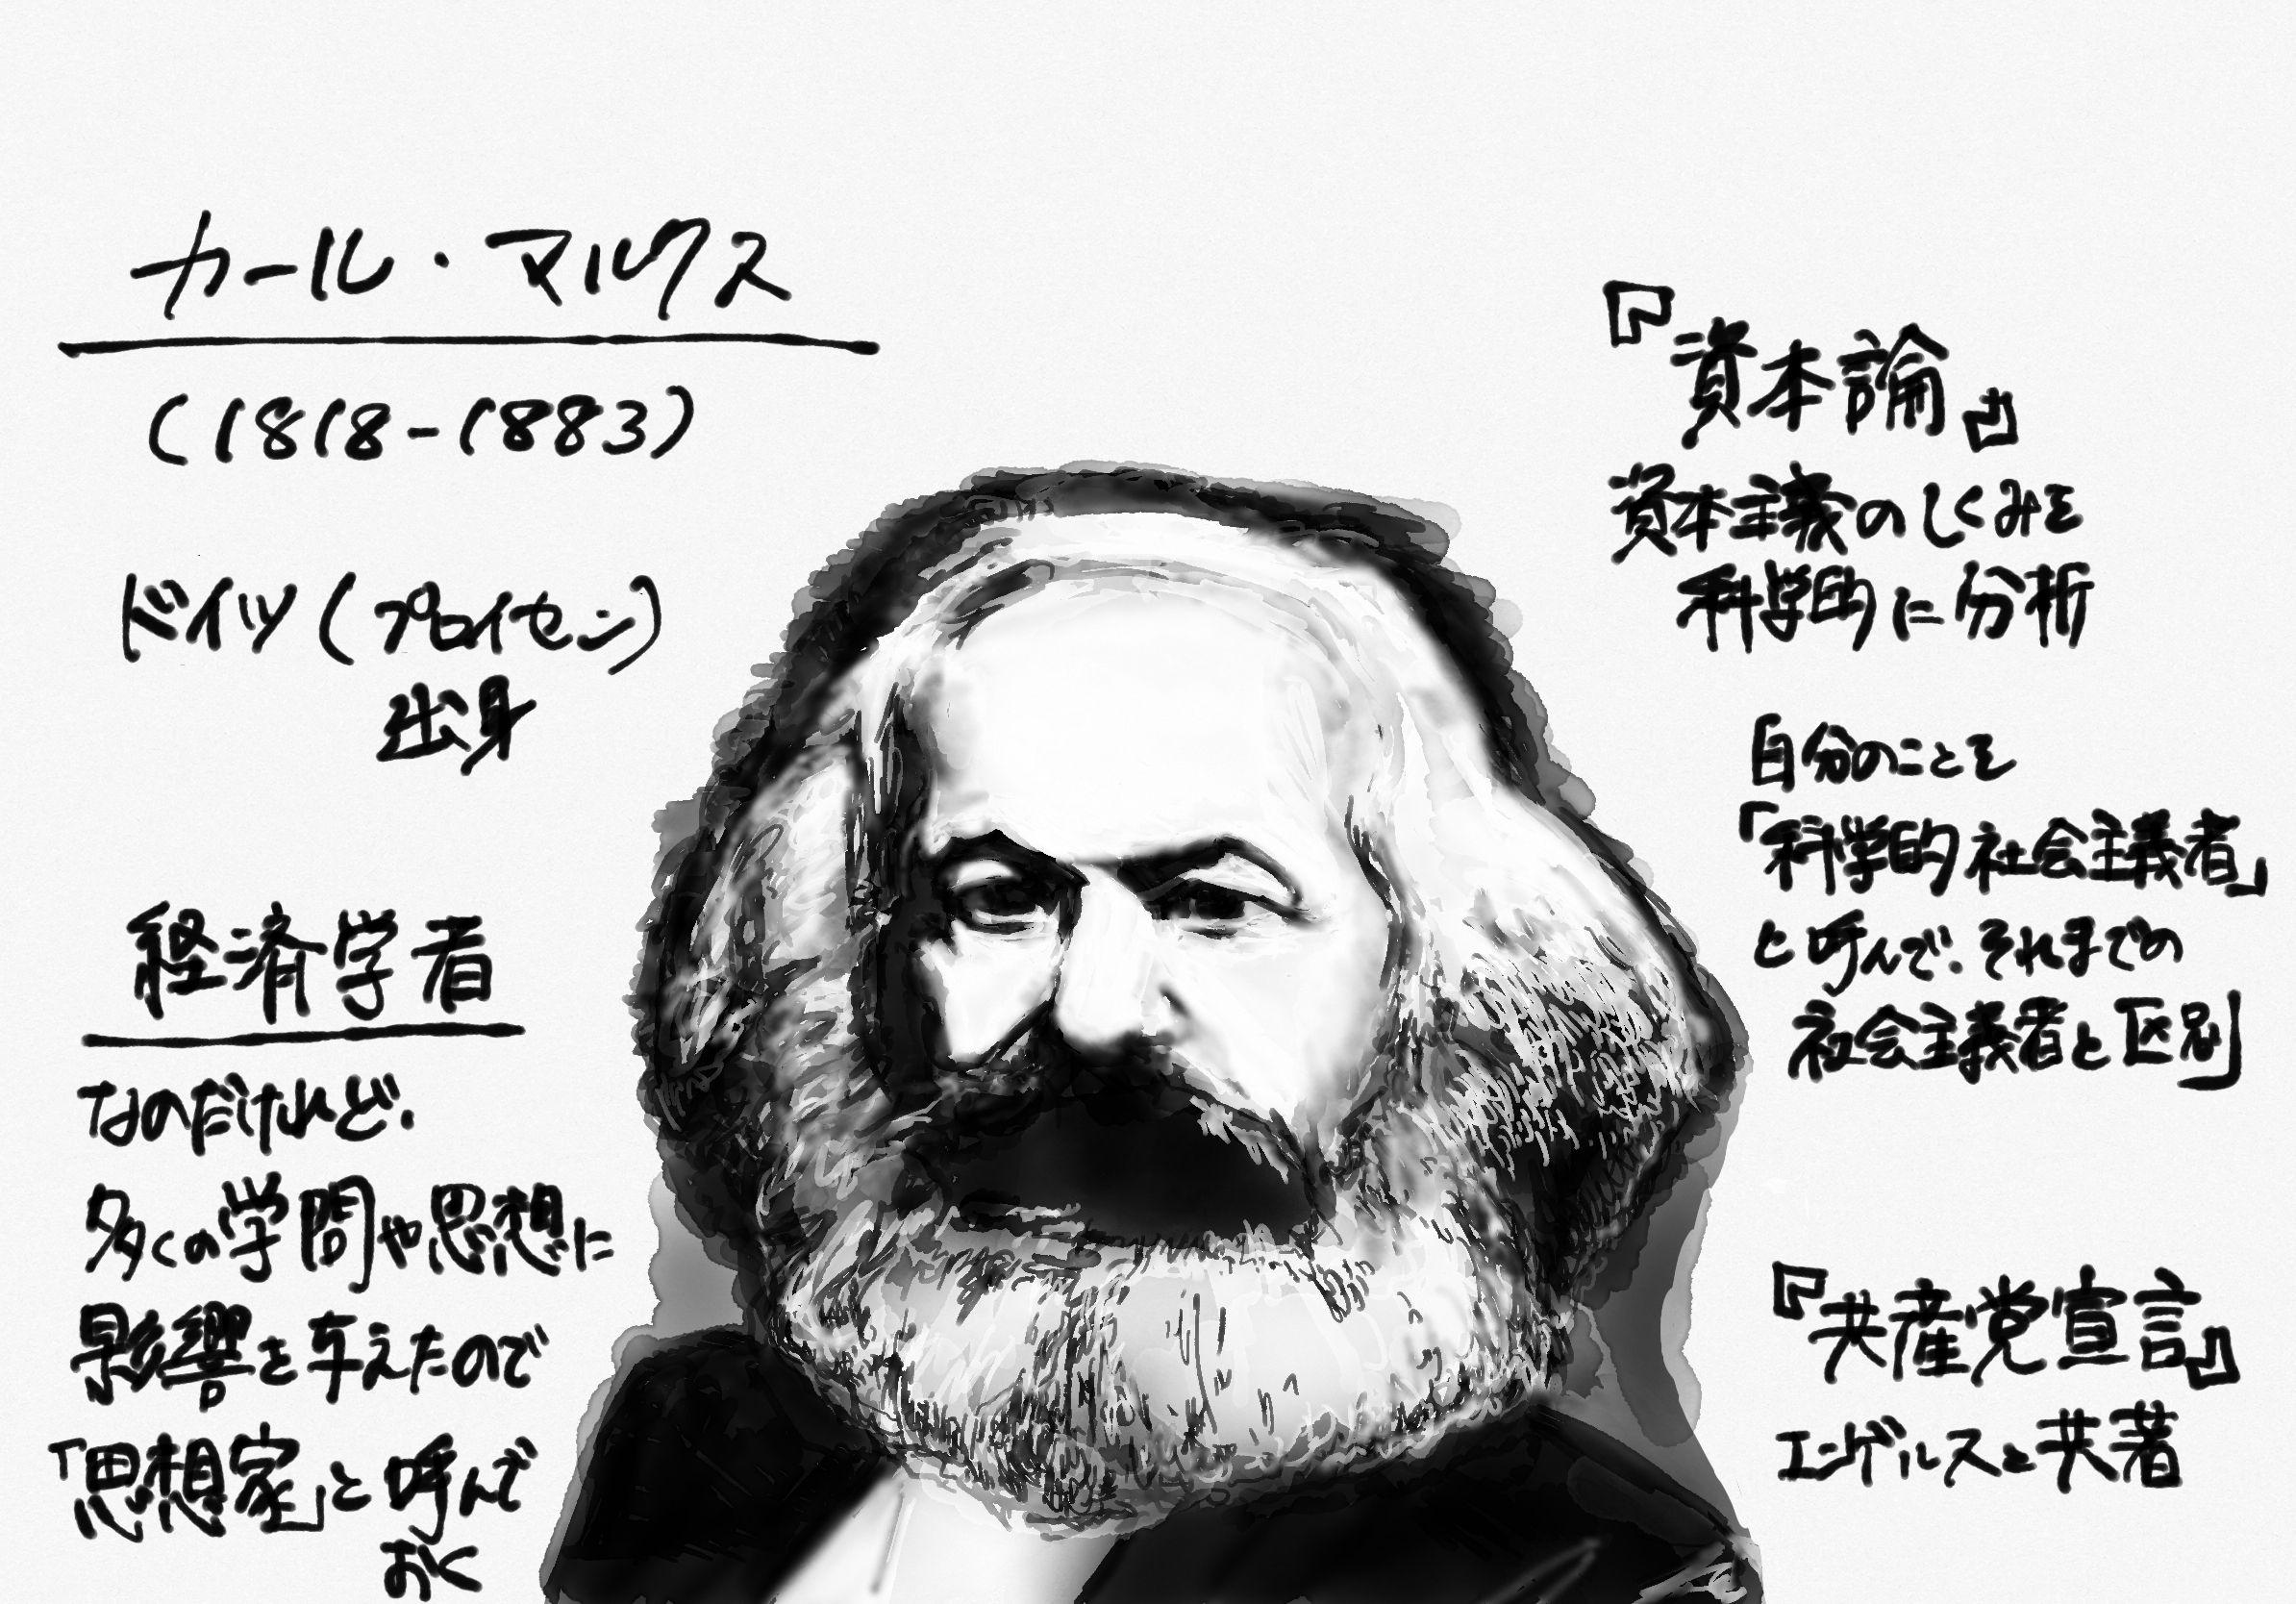 カール・マルクス
(1818-1883)
ドイツ(プロイセン)
出身
経済学者
なのだけれど、
多くの学問や思想に
影響を与えたので
「思想家」と呼んで
おく
『資本論』
資本主義のしくみを
科学的に分析
自分のことを
「科学的社会主義者」
と呼んで、それまでの
社会主義者と区別
『共産党宣言』
エンゲルスと共著